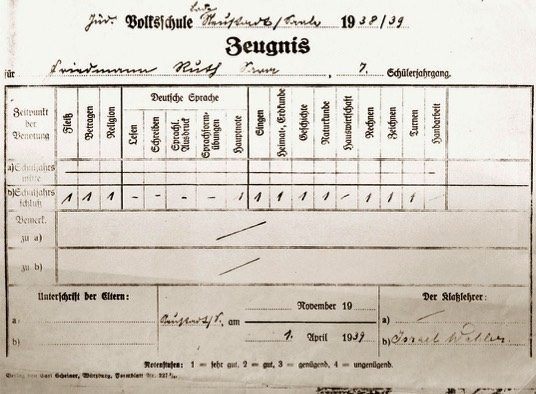 Jüd. Volksschule Bad Neustadt/Saale 1938/39
Zeugnis
für Friedmann Ruth Sara, 7. Schülerjahrgang.
Zeitpunkt der Benotung Fleiß Betragen Religion Deutsche Sprache Lesen Schreiben Sprachl. Ausdruck Sprachform-übungen Hauptnote Singen Heimat-, Erdkunde Geschichte Naturkunde Hauswirtschaft Rechnen Zeichnen Turnen Handarbeit
a) Schuljahrs mitte
b) Schuljahrs schluß 1 1 1 – – – – 1 1 1 1 1 – 1 1 1
Bemerk.
zu a) /
zu b) /
Unterschrift der Eltern: November 19 Der Klaßlehrer:
a) Neustadt/S. am a) –
b) 1. April 1939 b) Israel Wahler
Notenstufen: 1 = sehr gut, 2 = gut, 3 = genügend, 4 = ungenügend.
Verlag von Carl Scheiner, Würzburg, Formblatt Nr. 227